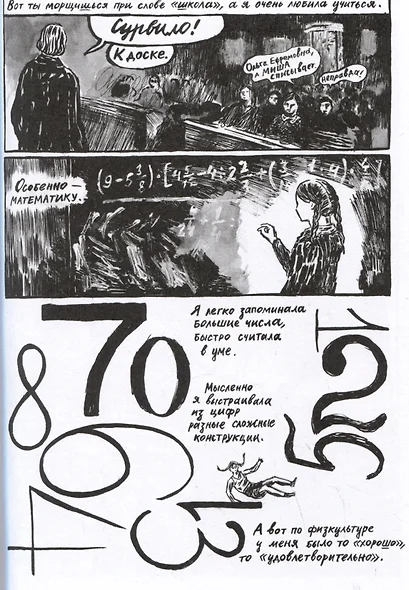 Вот ты морщишься при слове «школа», а я очень любила учиться.
Сурвило!
К доске.
Ольга Ефремовна,
а Миша
списывает.
Неправда!
Особенно —
математику.
Я легко запоминала
большие числа,
быстро считала
в уме.
Мысленно
я выстраивала
из цифр
разные сложные
конструкции.
7
0
8
9
6
4
1
3
1
2
5
А вот по физкультуре
у меня было то «хорошо»,
то «удовлетворительно».